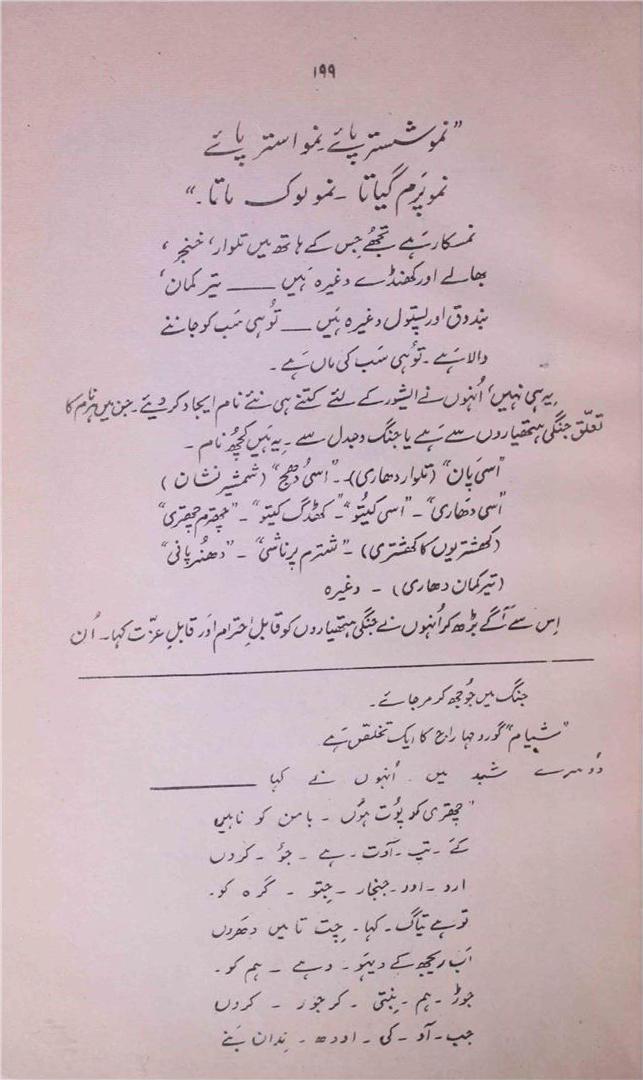 ۱۹۹
”نمو شستر پائے نمو استر پائے
نمو پرم گیاتا ۔ نمو لوک ماتا ۔“
نمسکار ہے تجھے جس کے ہاتھ میں تلوار، خنجر،
بھالے اور کھنڈے وغیرہ ہیں ـــــ تیر کمان،
بندوق اور پستول وغیرہ ہیں ـــ توُ ہی سَب کو جاننے
والا ہے ۔ توُ ہی سَب کی ماں ہے ۔
یہ ہی نہیں، اُنہوں نے ایشور کے لئے کتنے ہی نئے نام ایجاد کر دیئے ۔ جن میں ہر نام کا
تعلّق جنگی ہتھیاروں سے ہے یا جنگ و جدل سے ۔ یہ ہیں کچھُ نام ۔
”اسی پان“ (تلوار دھاری) ۔ ”اسی دھج“ (شمشیر نشان)
”اسی دھاری“ ۔ ”اسی کیتُو“ ۔ ”کھڈگ کیتو“ ۔ ”چھترم چھتری“
(کھشتریوں کا کھشتری) ۔ ”شترم پرناشی“ ۔ ”دھنُر پانی“
(تیر کمان دھاری) ۔ وغیرہ
اِس سے آگے بڑھ کر اُنہوں نے جنگی ہتھیاروں کو قابلِ احترام اور قابلِ عزّت کہا ۔ اُن
جنگ میں جوُجھ کر مر جائے ۔
”شیام“ گورو مہاراج کا ایک تخلّص ہے
دوُسرے شبد میں اُنہوں نے کہا ـــــــ
”چھتری کو پوُت ہوُں ۔ بامن کو ناہیں
کَے ۔ تپ ۔ آوت ۔ ہے ۔ جوُ ۔ کروں
ارو ۔ اور ۔ جنجار ۔ جِتو ۔ گرہ کو ۔
تو ہے تیاگ ۔ کہا ۔ چِت تا میں دھروں
اَب ریجھ کے دیہوَ ۔ وہے ۔ ہم کو ۔
جوڑ ۔ ہم ۔ بنتی ۔ کر جور ۔ کروں
جب ۔ آو ۔ کی ۔ اودھ ۔ نِدان بَنے